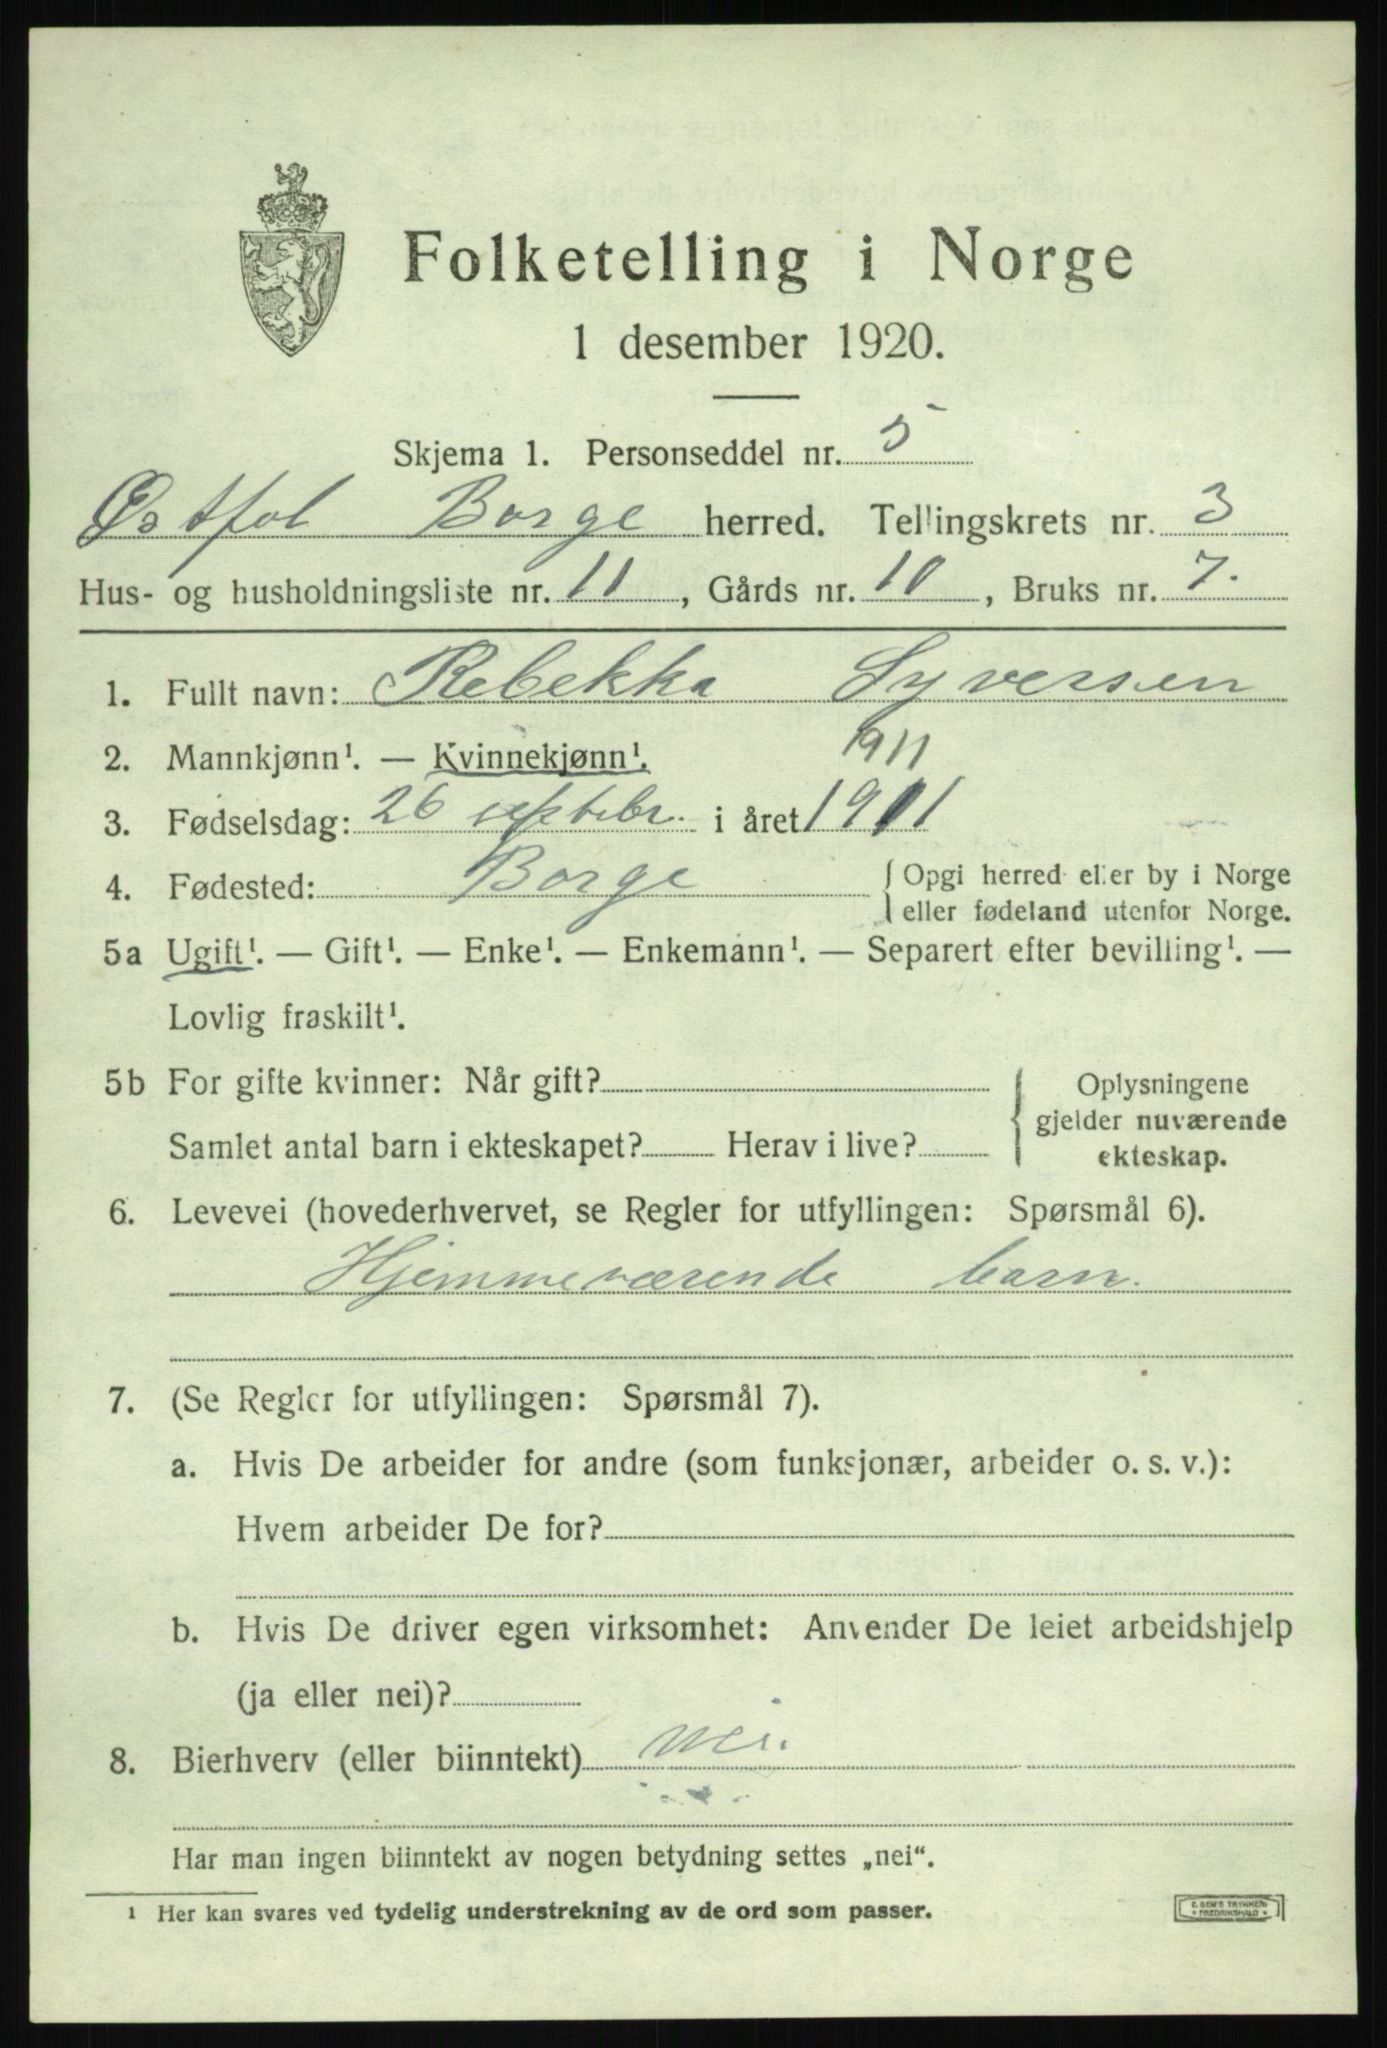 Folketelling i Norge
1 desember 1920.
Skjema 1. Personseddel nr. 5
Østfol Borge herred. Tellingskrets nr. 3
Hus- og husholdningsliste nr. 11, Gårds nr. 10, Bruks nr. 7.
1. Fullt navn: Rebekka Syversen
2. Mannkjønn¹. — Kvinnekjønn¹. 1911
3. Fødselsdag: 26 septbr. i året 1911
4. Fødested: Borge { Opgi herred eller by i Norge
eller fødeland utenfor Norge.
5a Ugift¹. — Gift¹. — Enke¹. — Enkemann¹. — Separert efter bevilling¹. —
Lovlig fraskilt¹.
5b For gifte kvinner: Når gift? { Oplysningene
gjelder nuværende
Samlet antal barn i ekteskapet? Herav i live? ekteskap.
6. Levevei (hovederhvervet, se Regler for utfyllingen: Spørsmål 6).
Hjemmeværende barn.
7. (Se Regler for utfyllingen: Spørsmål 7).
a. Hvis De arbeider for andre (som funksjonær, arbeider o. s. v.):
Hvem arbeider De for?
b. Hvis De driver egen virksomhet: Anvender De leiet arbeidshjelp
(ja eller nei)?
8. Bierhverv (eller biinntekt) nei.
Har man ingen biinntekt av nogen betydning settes „nei“.
¹ Her kan svares ved tydelig understrekning av de ord som passer.
E. SEM'S TRYKKERI
* FREDRIKSHALD *